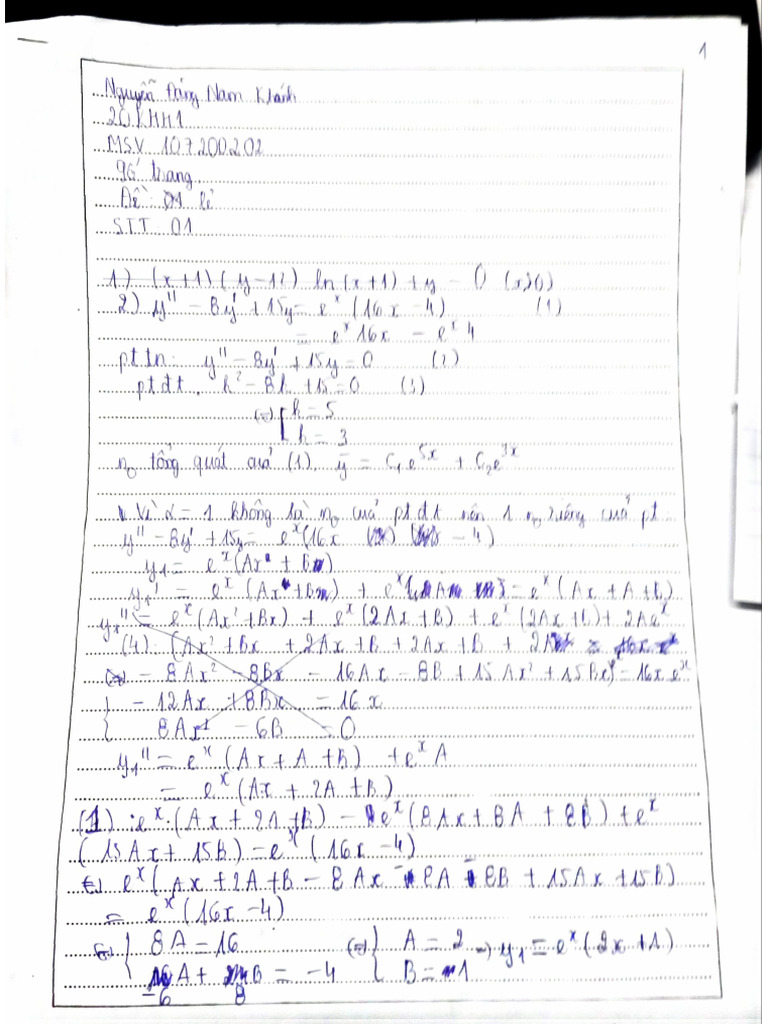 1
Nguyễn Đăng Nam Khánh
20KHH1
MSV 107200202
Số trang
Đề: 01 lẻ
STT 01
1) (x+1)(y-12) ln(x+1) + y = 0 (x>0)
2) y'' - 8y' + 15y = e^x (16x - 4) (1)
= e^x 16x - e^x 4
pt tn: y'' - 8y' + 15y = 0 (2)
pt đt: k² - 8k + 15 = 0 (3)
(=) [ k = 5
k = 3
no tổng quát của (1) ȳ = C₁e^5x + C₂e^3x
Vì α = 1 không là no của pt đt nên 1 no riêng của pt
y'' - 8y' + 15y = e^x (16x - 4)
y₁ = e^x (Ax + B)
y₁' = e^x (Ax + B) + e^x A = e^x (Ax + A + B)
y₁'' = e^x (Ax² + Bx) + e^x (2Ax + B) + e^x (2Ax + B) + 2Ae^x
(4): (Ax² + Bx + 2Ax + B + 2Ax + B + 2A
(=) - 8Ax² - 8Bx - 16Ax - 8B + 15Ax² + 15Bx) = 16x e^x
{ - 12Ax + 8Bx = 16x
8Ax² - 6B = 0
y₁'' = e^x (Ax + A + B) + e^x A
= e^x (Ax + 2A + B)
(1): e^x (Ax + 2A + B) - e^x (8Ax + 8A + 8B) + e^x
(15Ax + 15B) = e^x (16x - 4)
(=) e^x (Ax + 2A + B - 8Ax - 8A - 8B + 15Ax + 15B)
= e^x (16x - 4)
(=) { 8A = 16 (=) { A = 2 → y₁ = e^x (2x + 1)
-6A + 8B = -4 B = 1